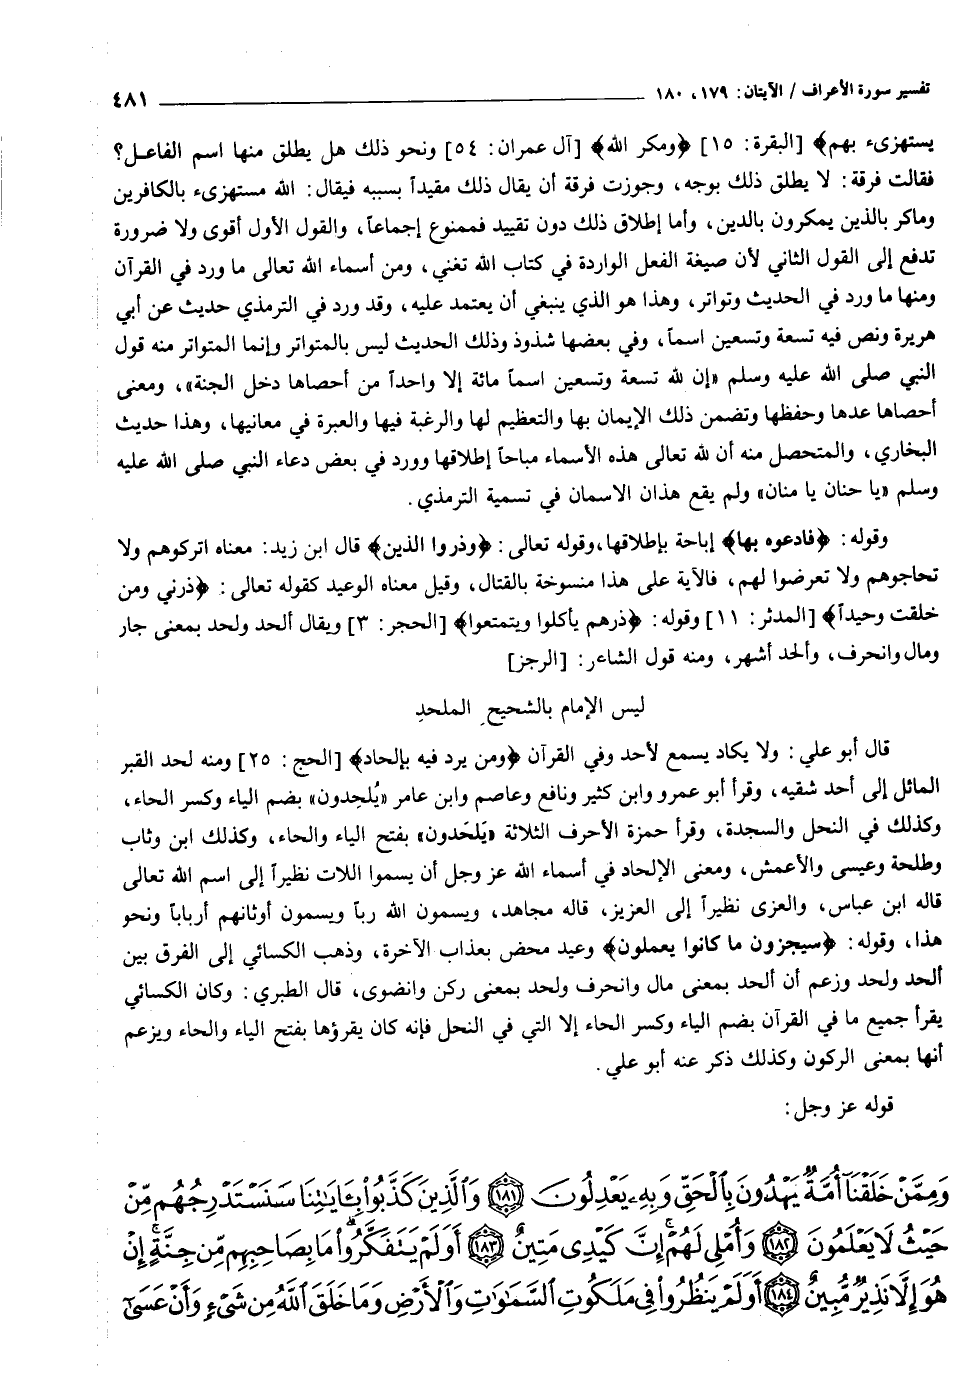 تفسير سورة الأعراف / الآيتان: ١٧٩، ١٨٠ ٤٨١
يستهزىء بهم﴾ [البقرة: ١٥] ﴿ومكر الله﴾ [آل عمران: ٥٤] ونحو ذلك هل يطلق منها اسم الفاعل؟
فقالت فرقة: لا يطلق ذلك بوجه، وجوزت فرقة أن يقال ذلك مقيداً بسببه فيقال: الله مستهزىء بالكافرين
وماكر بالذين يمكرون بالدين، وأما إطلاق ذلك دون تقييد فممنوع إجماعاً، والقول الأول أقوى ولا ضرورة
تدفع إلى القول الثاني لأن صيغة الفعل الواردة في كتاب الله تغني، ومن أسماء الله تعالى ما ورد في القرآن
ومنها ما ورد في الحديث وتواتر، وهذا هو الذي ينبغي أن يعتمد عليه، وقد ورد في الترمذي حديث عن أبي
هريرة ونص فيه تسعة وتسعين اسماً، وفي بعضها شذوذ وذلك الحديث ليس بالمتواتر وإنما المتواتر منه قول
النبي صلى الله عليه وسلم «إن لله تسعة وتسعين اسماً مائة إلا واحداً من أحصاها دخل الجنة»، ومعنى
أحصاها عدها وحفظها وتضمن ذلك الإيمان بها والتعظيم لها والرغبة فيها والعبرة في معانيها، وهذا حديث
البخاري، والمتحصل منه أن لله تعالى هذه الأسماء مباحاً إطلاقها وورد في بعض دعاء النبي صلى الله عليه
وسلم «يا حنان يا منان» ولم يقع هذان الاسمان في تسمية الترمذي.
وقوله: ﴿فادعوه بها﴾ إباحة بإطلاقها، وقوله تعالى: ﴿وذروا الذين﴾ قال ابن زيد: معناه اتركوهم ولا
تحاجوهم ولا تعرضوا لهم، فالآية على هذا منسوخة بالقتال، وقيل معناه الوعيد كقوله تعالى: ﴿ذرني ومن
خلقت وحيداً﴾ [المدثر: ١١] وقوله: ﴿ذرهم يأكلوا ويتمتعوا﴾ [الحجر: ٣] ويقال ألحد ولحد بمعنى جار
ومال وانحرف، وألحد أشهر، ومنه قول الشاعر: [الرجز]
ليس الإمام بالشحيحِ الملحدِ
قال أبو علي: ولا يكاد يسمع لأحد وفي القرآن ﴿ومن يرد فيه بإلحاد﴾ [الحج: ٢٥] ومنه لحد القبر
المائل إلى أحد شقيه، وقرأ أبو عمرو وابن كثير ونافع وعاصم وابن عامر «يُلحِدون» بضم الياء وكسر الحاء،
وكذلك في النحل والسجدة، وقرأ حمزة الأحرف الثلاثة «يَلحَدون» بفتح الياء والحاء، وكذلك ابن وثاب
وطلحة وعيسى والأعمش، ومعنى الإلحاد في أسماء الله عز وجل أن يسموا اللات نظيراً إلى اسم الله تعالى
قاله ابن عباس، والعزى نظيراً إلى العزيز، قاله مجاهد، ويسمون الله رباً ويسمون أوثانهم أرباباً ونحو
هذا، وقوله: ﴿سيجزون ما كانوا يعملون﴾ وعيد محض بعذاب الآخرة، وذهب الكسائي إلى الفرق بين
ألحد ولحد وزعم أن ألحد بمعنى مال وانحرف ولحد بمعنى ركن وانضوى، قال الطبري: وكان الكسائي
يقرأ جميع ما في القرآن بضم الياء وكسر الحاء إلا التي في النحل فإنه كان يقرؤها بفتح الياء والحاء ويزعم
أنها بمعنى الركون وكذلك ذكر عنه أبو علي.
قوله عز وجل:
وَمِمَّنْ خَلَقْنَآ أُمَّةٌ يَهْدُونَ بِالْحَقِّ وَبِهِۦ يَعْدِلُونَ ﴿١٨١﴾ وَالَّذِينَ كَذَّبُوا۟ بِـَٔايَـٰتِنَا سَنَسْتَدْرِجُهُم مِّنْ
حَيْثُ لَا يَعْلَمُونَ ﴿١٨٢﴾ وَأُمْلِى لَهُمْ إِنَّ كَيْدِى مَتِينٌ ﴿١٨٣﴾ أَوَلَمْ يَتَفَكَّرُوا۟ مَا بِصَاحِبِهِم مِّن جِنَّةٍ إِنْ
هُوَ إِلَّا نَذِيرٌ مُّبِينٌ ﴿١٨٤﴾ أَوَلَمْ يَنظُرُوا۟ فِى مَلَكُوتِ السَّمَـٰوَٰتِ وَالْأَرْضِ وَمَا خَلَقَ اللَّهُ مِن شَىْءٍ وَأَنْ عَسَىٰٓ